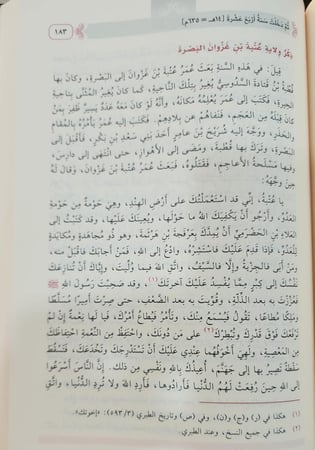 ثُمَّ دَخَلَتْ سَنَةُ أَرْبَعَ عَشْرَةَ (١٤هـ = ٦٣٥م)
١٨٣
ذِكْرُ وِلَايَةِ عُتْبَةَ بْنِ غَزْوَانَ الْبَصْرَةَ
قِيلَ: فِي هٰذِهِ السَّنَةِ بَعَثَ عُمَرُ عُتْبَةَ بْنَ غَزْوَانَ إِلَى الْبَصْرَةِ، وَكَانَ بِهَا
قُطْبَةُ بْنُ قَتَادَةَ السَّدُوسِيُّ يُغِيرُ بِتِلْكَ النَّاحِيَةِ، كَمَا كَانَ يُغِيرُ الْمُثَنَّى بِنَاحِيَةِ
الْحِيرَةِ، فَكَتَبَ إِلَى عُمَرَ يُعْلِمُهُ مَكَانَهُ، وَأَنَّهُ لَوْ كَانَ مَعَهُ عَدَدٌ يَسِيرٌ ظَفِرَ بِمَنْ
كَانَ قِبَلَهُ مِنَ الْعَجَمِ، فَنَفَاهُمْ عَنْ بِلَادِهِمْ. فَكَتَبَ إِلَيْهِ عُمَرُ يَأْمُرُهُ بِالْمُقَامِ
وَالْحَذَرِ، وَوَجَّهَ إِلَيْهِ شُرَيْحَ بْنَ عَامِرٍ أَحَدَ بَنِي سَعْدِ بْنِ بَكْرٍ، فَأَقْبَلَ إِلَى
الْبَصْرَةِ، وَتَرَكَ بِهَا قُطْبَةَ، وَمَضَى إِلَى الْأَهْوَازِ، حَتَّى انْتَهَى إِلَى دَارِسَ،
وَفِيهَا مَسْلَحَةُ الْأَعَاجِمِ، فَقَتَلُوهُ، فَبَعَثَ عُمَرُ عُتْبَةَ بْنَ غَزْوَانَ، وَقَالَ لَهُ
حِينَ وَجَّهَهُ:
يَا عُتْبَةُ، إِنِّي قَدِ اسْتَعْمَلْتُكَ عَلَى أَرْضِ الْهِنْدِ، وَهِيَ حَوْمَةٌ مِنْ حَوْمَةِ
الْعَدُوِّ، وَأَرْجُو أَنْ يَكْفِيَكَ اللهُ مَا حَوْلَهَا، وَيُعِينَكَ عَلَيْهَا، وَقَدْ كَتَبْتُ إِلَى
الْعَلَاءِ بْنِ الْحَضْرَمِيِّ أَنْ يُمِدَّكَ بِعَرْفَجَةَ بْنِ هَرْثَمَةَ، وَهُوَ ذُو مُجَاهَدَةٍ وَمُكَايَدَةٍ
لِلْعَدُوِّ، فَإِذَا قَدِمَ عَلَيْكَ فَاسْتَشِرْهُ، وَادْعُ إِلَى اللهِ، فَمَنْ أَجَابَكَ فَاقْبَلْ مِنْهُ،
وَمَنْ أَبَى فَالْجِزْيَةُ وَإِلَّا فَالسَّيْفُ، وَاتَّقِ اللهَ فِيمَا وُلِّيتَ، وَإِيَّاكَ أَنْ تُنَازِعَكَ
نَفْسُكَ إِلَى كِبْرٍ مِمَّا يُفْسِدُ عَلَيْكَ آخِرَتَكَ(١)، وَقَدْ صَحِبْتَ رَسُولَ اللهِ ﷺ
فَعَزَزْتَ بِهِ بَعْدَ الذِّلَّةِ، وَقَوِيتَ بِهِ بَعْدَ الضَّعْفِ، حَتَّى صِرْتَ أَمِيرًا مُسَلَّطًا
وَمَلِكًا مُطَاعًا، تَقُولُ فَيُسْمَعُ مِنْكَ، وَتَأْمُرُ فَيُطَاعُ أَمْرُكَ، فَيَا لَهَا نِعْمَةً إِنْ لَمْ
تَرْفَعْكَ فَوْقَ قَدْرِكَ وَتُبْطِرْكَ(٢) عَلَى مَنْ دُونَكَ، وَاحْتَفِظْ مِنَ النِّعْمَةِ احْتِفَاظَكَ
مِنَ الْمَعْصِيَةِ، وَلَهِيَ أَخْوَفُهُمَا عِنْدِي عَلَيْكَ أَنْ تَسْتَدْرِجَكَ وَتَخْدَعَكَ، فَتَسْقُطَ
سَقْطَةً تَصِيرُ بِهَا إِلَى جَهَنَّمَ، أُعِيذُكَ بِاللهِ وَنَفْسِي مِنْ ذٰلِكَ. إِنَّ النَّاسَ أَسْرَعُوا
إِلَى اللهِ حِينَ رُفِعَتْ لَهُمُ الدُّنْيَا فَأَرَادُوهَا، فَأَرِدِ اللهَ وَلَا تُرِدِ الدُّنْيَا، وَاتَّقِ
(١) هكذا في (ر) و(ج) و(ن)، وفي (ص) وتاريخ الطبري (٣/ ٥٩٣): «إخوتك».
(٢) هكذا في جميع النسخ، وعند الطبري.